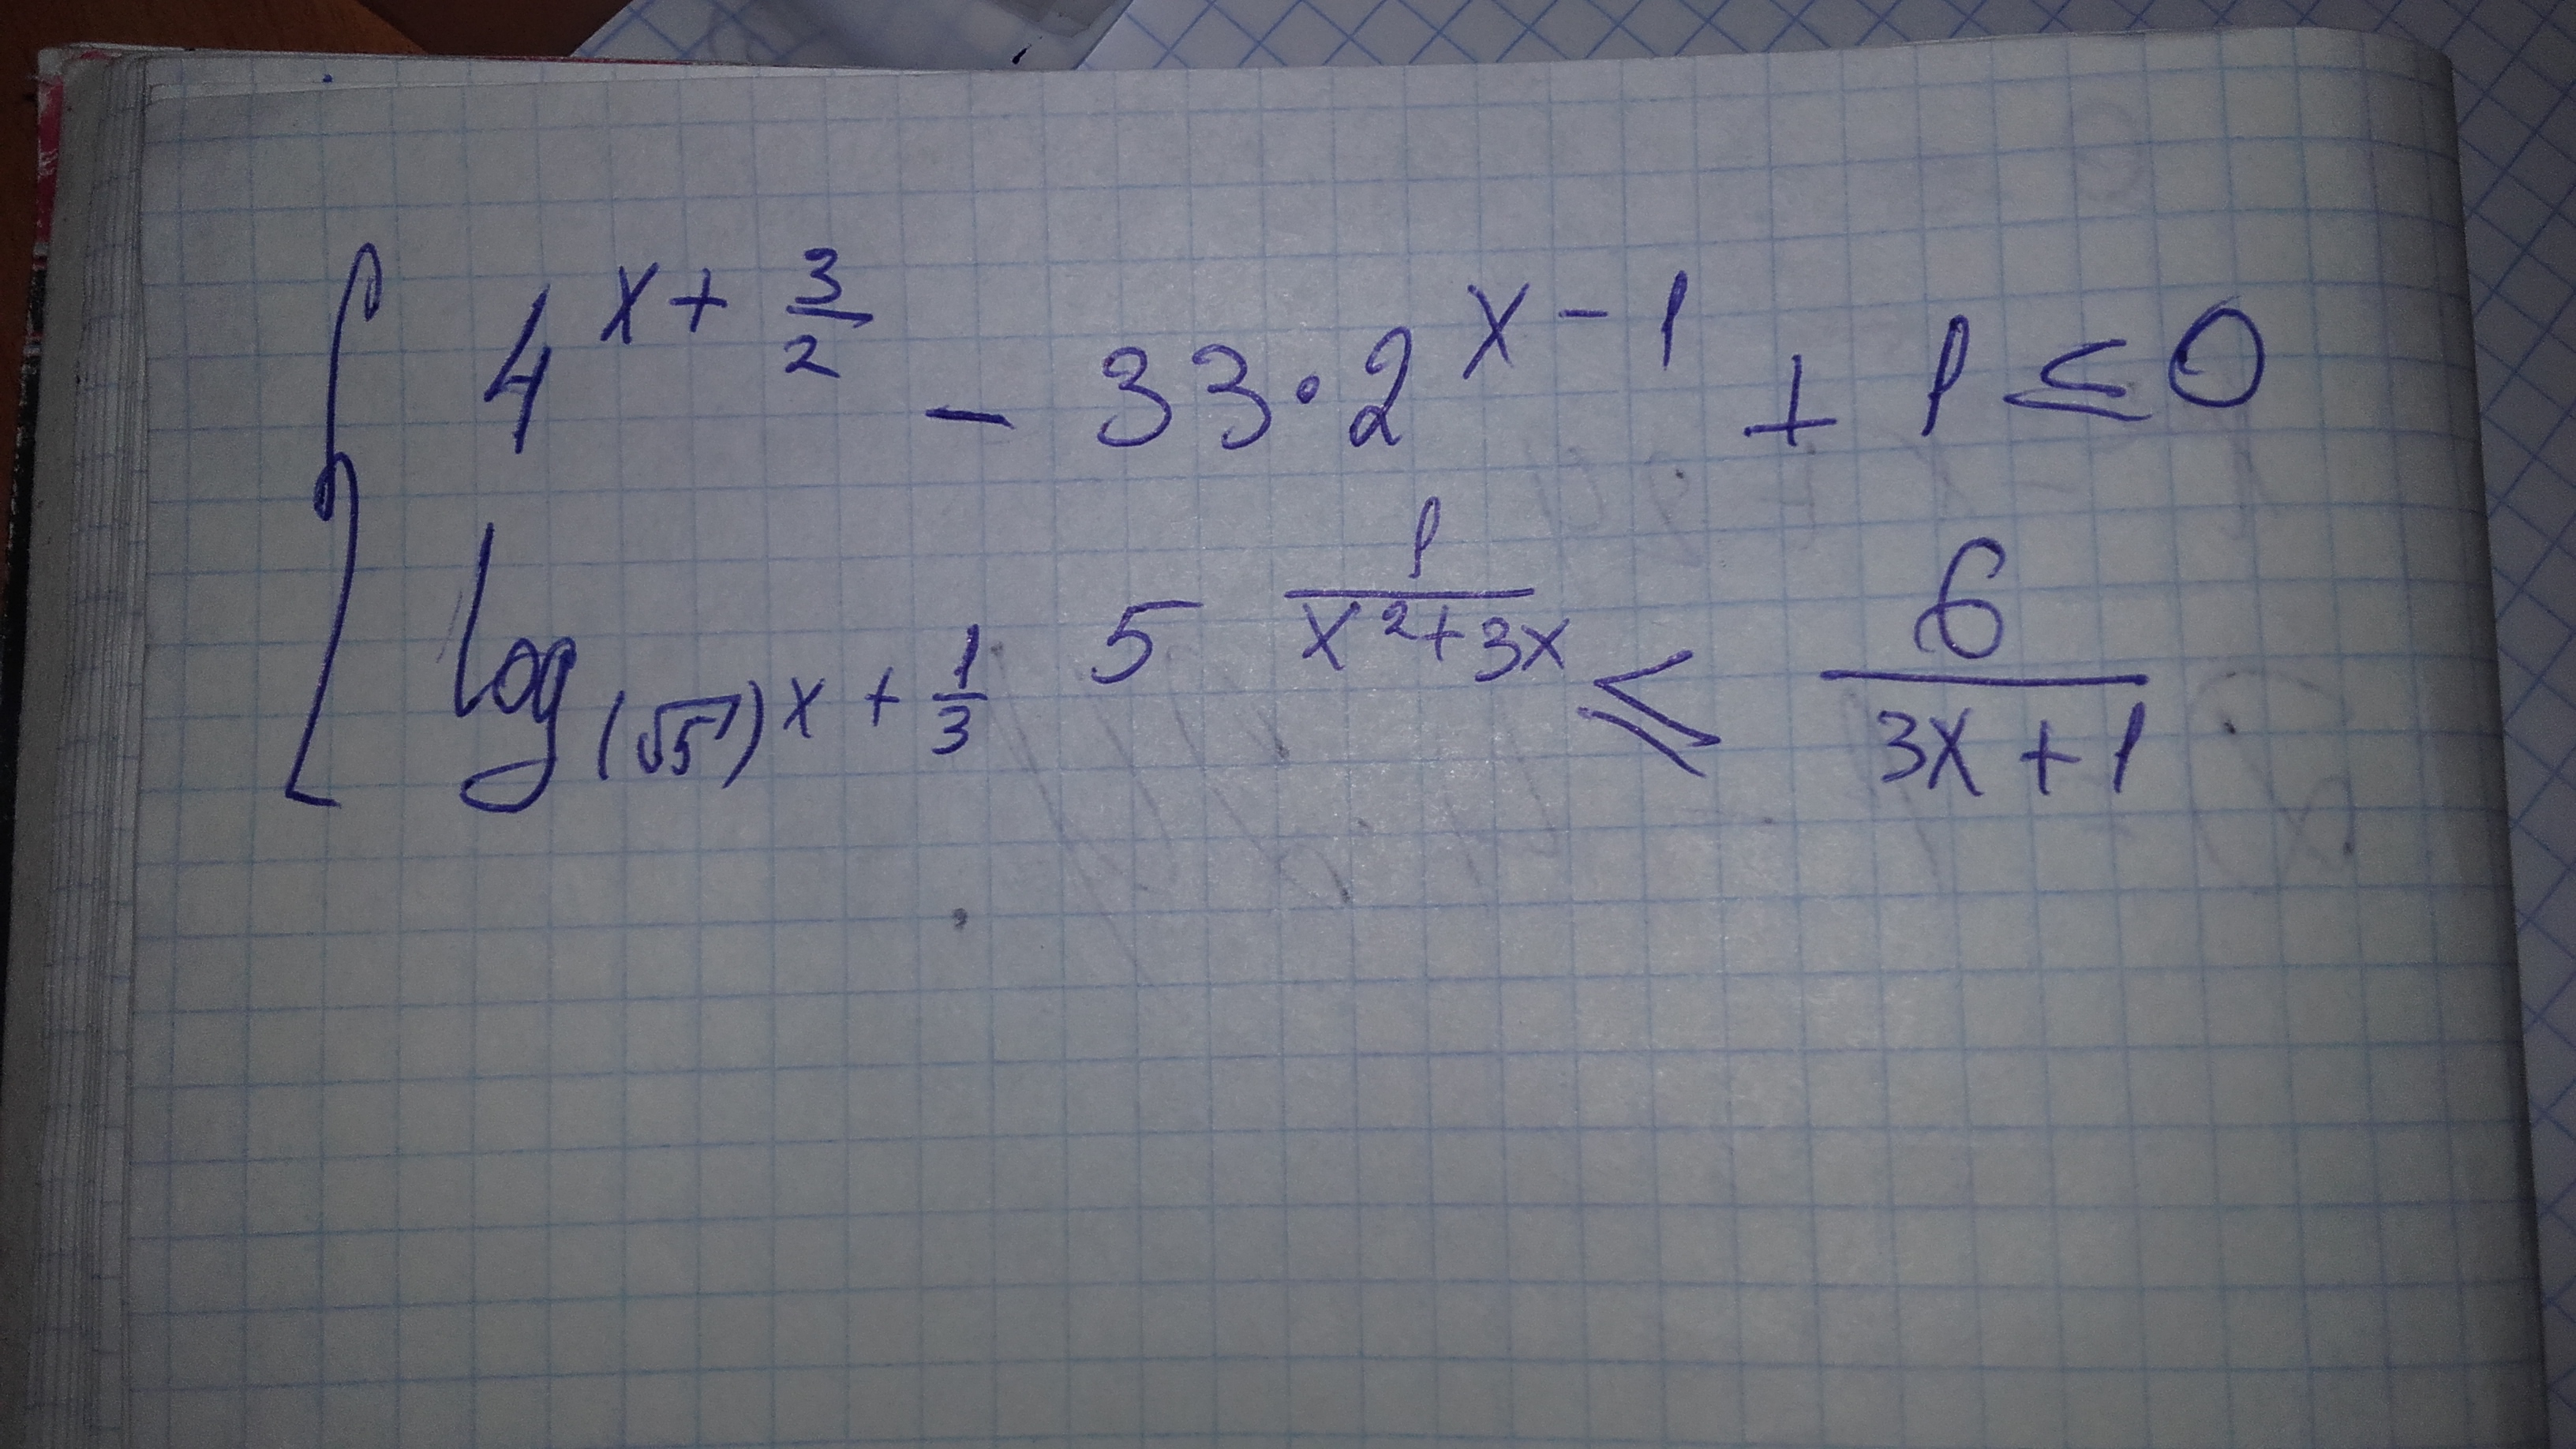 { 4^{x + \frac{3}{2}} - 33 · 2^{x - 1} + 1 ≤ 0
log_{(√5)^{x + \frac{1}{3}}} 5^{\frac{1}{x^2 + 3x}} ≤ \frac{6}{3x + 1}